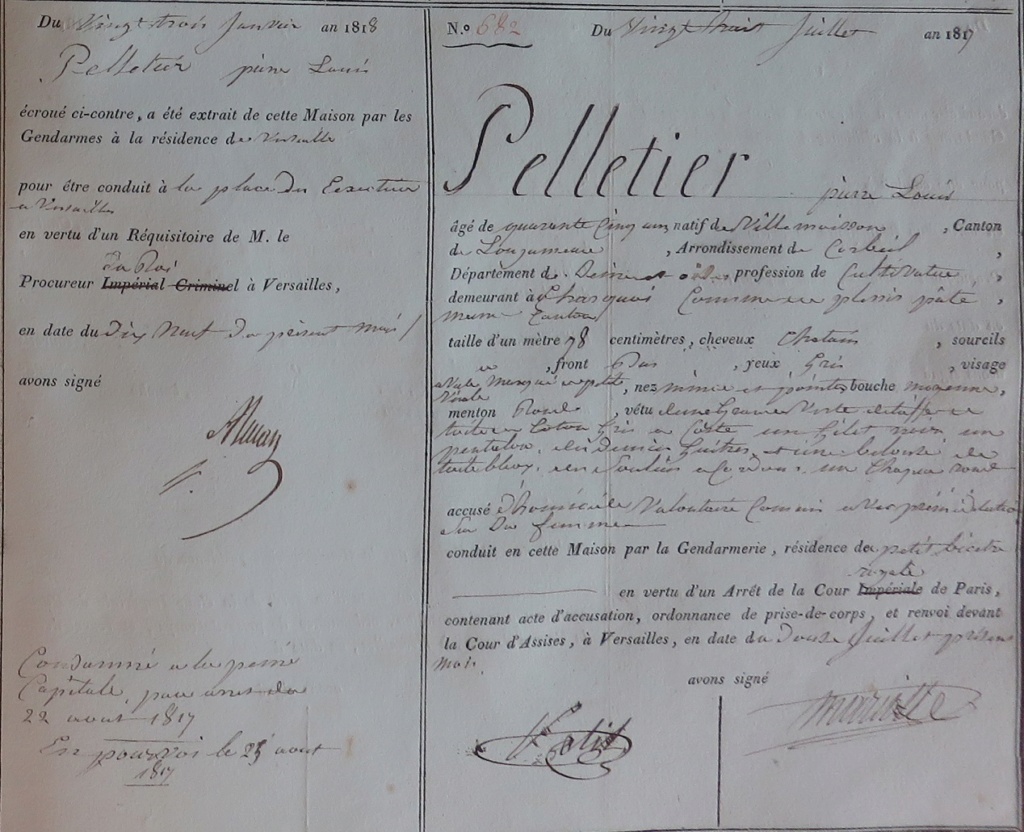 Du Vingt trois Janvier an 1818
Pelletier pierre Louis
écroué ci-contre, a été extrait de cette Maison par les
Gendarmes à la résidence de Versailles
pour être conduit à la place des Execution
a Versailles
en vertu d'un Réquisitoire de M. le
du Roi
Procureur Impérial Criminel à Versailles,
en date du Dix Neuf du présent mois
avons signé
Condamné a la peine
Capitale, par arret du
22 aout 1817
En pourvoi le 25 aout
1817
N.º 682 Du Vingt huit Juillet an 1817
Pelletier pierre Louis
âgé de quarante Cinq ans natif de Villemoisson, Canton
de Lonjumeau, Arrondissement de Corbeil,
Département de Seine et oise profession de Cultivateur,
demeurant à Commune du plessis pâté
meme Canton
taille d'un mètre 78 centimètres, cheveux Chatain, sourcils
, front Bas, yeux Gris, visage
ovale Marqué de petite, nez mince et pointu bouche moyenne,
Vérole
menton Rond, vêtu
Coton Gris un Gilet un
pantalon, Guêtres, et une blouse de
toile bleu, Souliers a Cordons, un Chapeau rond
accusé d'homicide Volontaire Commis avec préméditation
Sur Sa femme
conduit en cette Maison par la Gendarmerie, résidence de petit bicetre
royale
en vertu d'un Arrêt de la Cour Impériale de Paris,
contenant acte d'accusation, ordonnance de prise-de-corps, et renvoi devant
la Cour d'Assises, à Versailles, en date du Douze Juillet présent
Mois.
avons signé